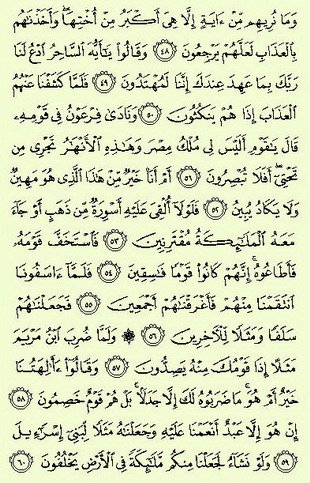 وَمَا نُرِيهِم مِّنْ ءَايَةٍ إِلَّا هِىَ أَكْبَرُ مِنْ أُخْتِهَا ۖ وَأَخَذْنَٰهُم
بِٱلْعَذَابِ لَعَلَّهُمْ يَرْجِعُونَ ٤٨ وَقَالُوا۟ يَٰٓأَيُّهَ ٱلسَّاحِرُ ٱدْعُ لَنَا
رَبَّكَ بِمَا عَهِدَ عِندَكَ إِنَّنَا لَمُهْتَدُونَ ٤٩ فَلَمَّا كَشَفْنَا عَنْهُمُ
ٱلْعَذَابَ إِذَا هُمْ يَنكُثُونَ ٥٠ وَنَادَىٰ فِرْعَوْنُ فِى قَوْمِهِۦ
قَالَ يَٰقَوْمِ أَلَيْسَ لِى مُلْكُ مِصْرَ وَهَٰذِهِ ٱلْأَنْهَٰرُ تَجْرِى مِن
تَحْتِىٓ ۖ أَفَلَا تُبْصِرُونَ ٥١ أَمْ أَنَا۠ خَيْرٌ مِّنْ هَٰذَا ٱلَّذِى هُوَ مَهِينٌ
وَلَا يَكَادُ يُبِينُ ٥٢ فَلَوْلَآ أُلْقِىَ عَلَيْهِ أَسْوِرَةٌ مِّن ذَهَبٍ أَوْ جَآءَ
مَعَهُ ٱلْمَلَٰٓئِكَةُ مُقْتَرِنِينَ ٥٣ فَٱسْتَخَفَّ قَوْمَهُۥ
فَأَطَاعُوهُ ۚ إِنَّهُمْ كَانُوا۟ قَوْمًا فَٰسِقِينَ ٥٤ فَلَمَّآ ءَاسَفُونَا
ٱنتَقَمْنَا مِنْهُمْ فَأَغْرَقْنَٰهُمْ أَجْمَعِينَ ٥٥ فَجَعَلْنَٰهُمْ
سَلَفًا وَمَثَلًا لِّلْءَاخِرِينَ ٥٦ ۞ وَلَمَّا ضُرِبَ ٱبْنُ مَرْيَمَ
مَثَلًا إِذَا قَوْمُكَ مِنْهُ يَصِدُّونَ ٥٧ وَقَالُوٓا۟ ءَأَٰلِهَتُنَا
خَيْرٌ أَمْ هُوَ ۚ مَا ضَرَبُوهُ لَكَ إِلَّا جَدَلًۢا ۚ بَلْ هُمْ قَوْمٌ خَصِمُونَ ٥٨
إِنْ هُوَ إِلَّا عَبْدٌ أَنْعَمْنَا عَلَيْهِ وَجَعَلْنَٰهُ مَثَلًا لِّبَنِىٓ إِسْرَٰٓءِيلَ
٥٩ وَلَوْ نَشَآءُ لَجَعَلْنَا مِنكُم مَّلَٰٓئِكَةً فِى ٱلْأَرْضِ يَخْلُفُونَ ٦٠